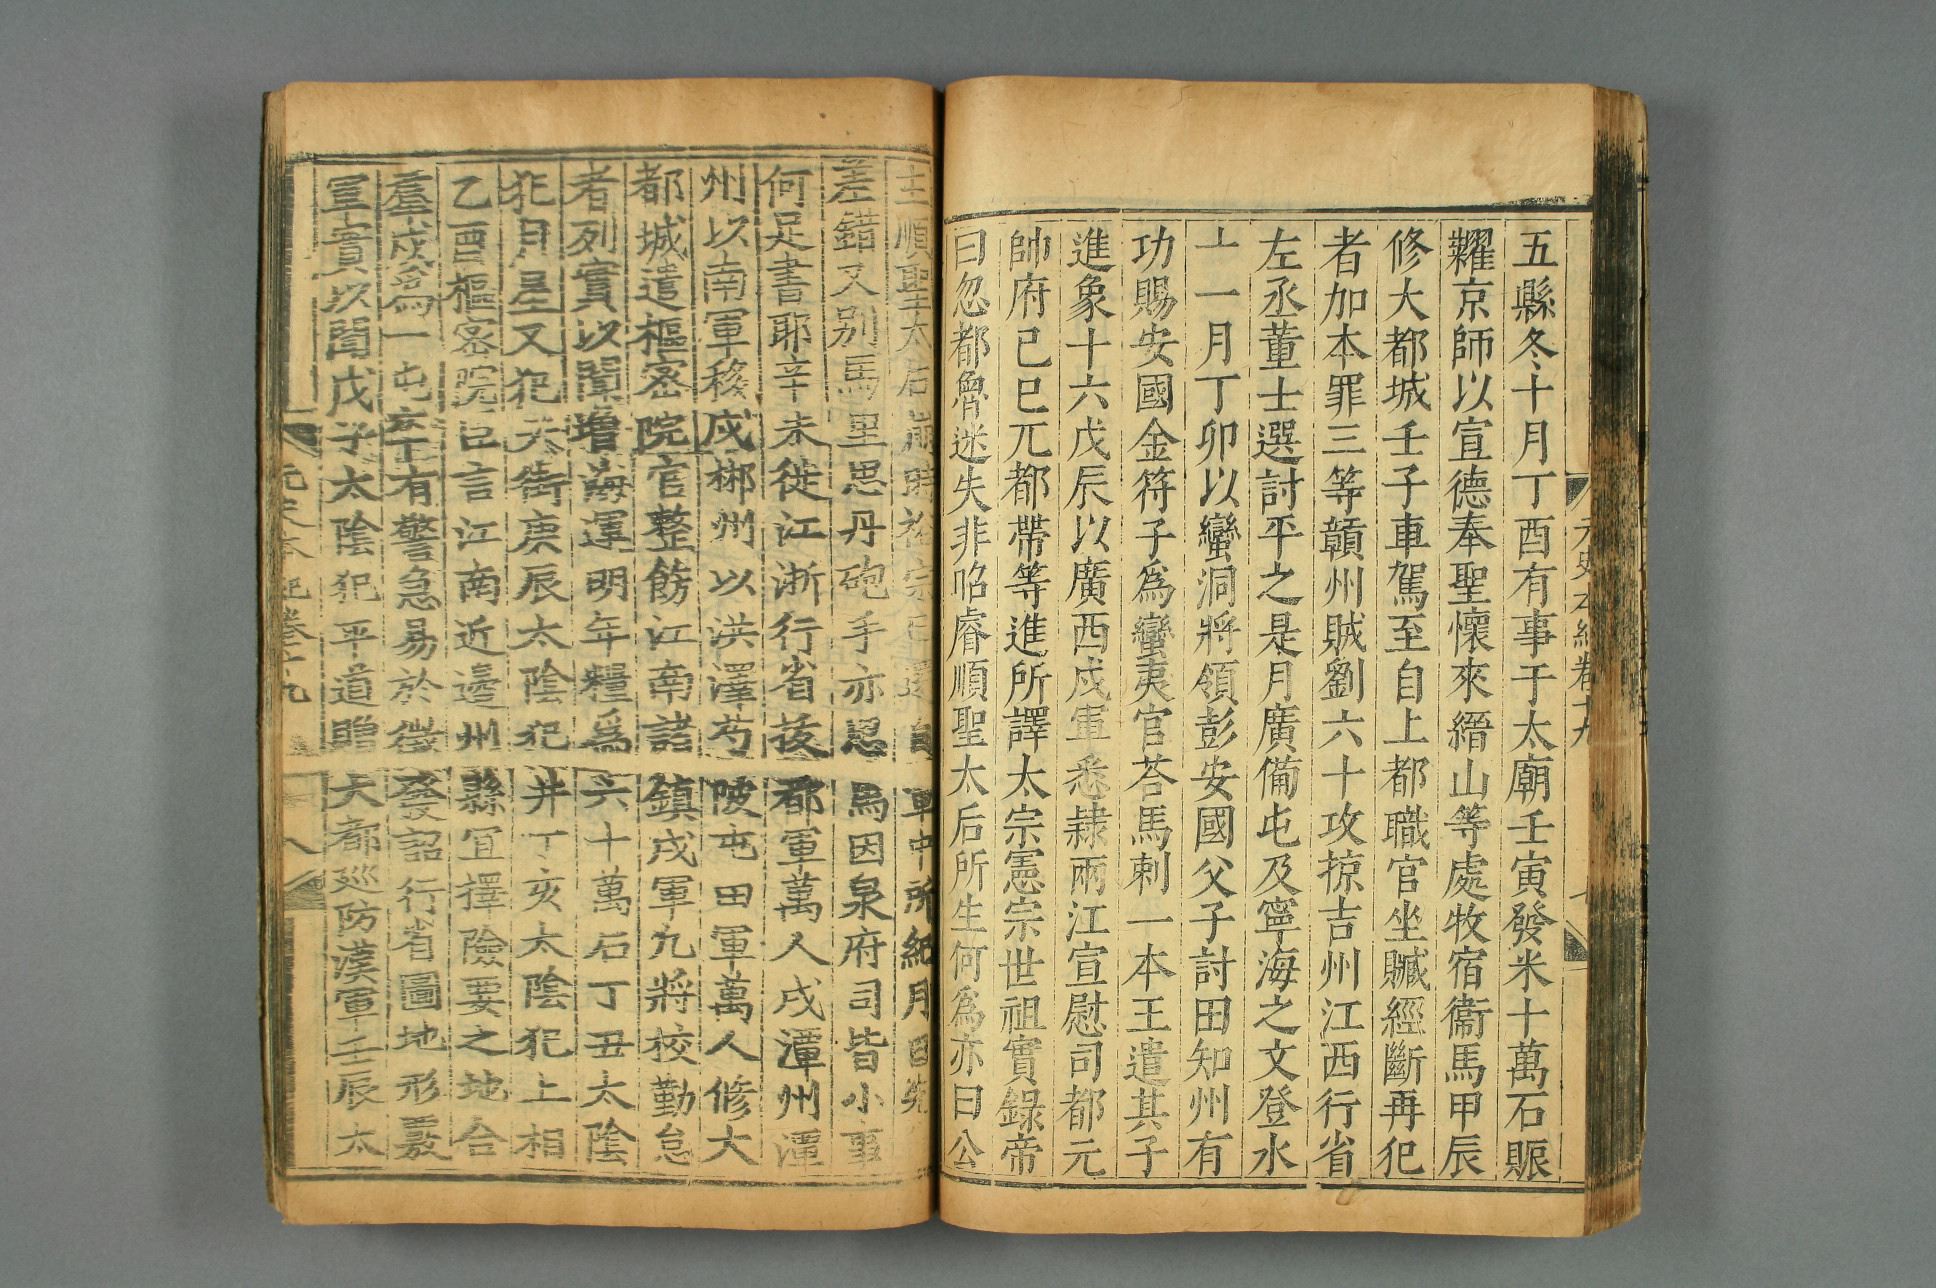 五縣冬十月丁酉有事于太廟壬寅發米十萬石賑
糶京師以宣德奉聖懷來縉山等處牧宿衞馬甲辰
修大都城壬子車駕至自上都職官坐贓經斷再犯
者加本罪三等贛州賊劉六十攻掠吉州江西行省
左丞董士選討平之是月廣備屯及寧海之文登水
十一月丁卯以蠻洞將領彭安國父子討田知州有
功賜安國金符子為蠻夷官荅馬剌一本王遣其子
進象十六戊辰以廣西戍軍悉隷兩江宣慰司都元
帥府己巳兀都帶等進所譯太宗憲宗世祖實錄帝
曰忽都魯迷失非昭睿順聖太后所生何為亦曰公
主順聖太后崩時裕宗
軍中所紀月日先
差錯又别馬里思丹砲手亦思馬因泉府司皆小事
何足書耶辛未徙江浙行省拔都軍萬人戍潭州潭
州以南軍移戍郴州以洪澤芍陂屯田軍萬人修大
都城遣樞密院官整飭江南諸鎮戍軍凡將校勤怠
者列實以聞增海運明年糧為六十萬石丁丑太陰
犯月星又犯天街庚辰太陰犯井丁亥太陰犯上相
乙酉樞密院臣言江南近邊州縣宜擇險要之地合
羣戍為一屯卒有警急易於徵發詔行省圖地形覈
軍實以聞戊子太陰犯平道贈大都巡防漢軍壬辰太
元史本紀卷十九
八